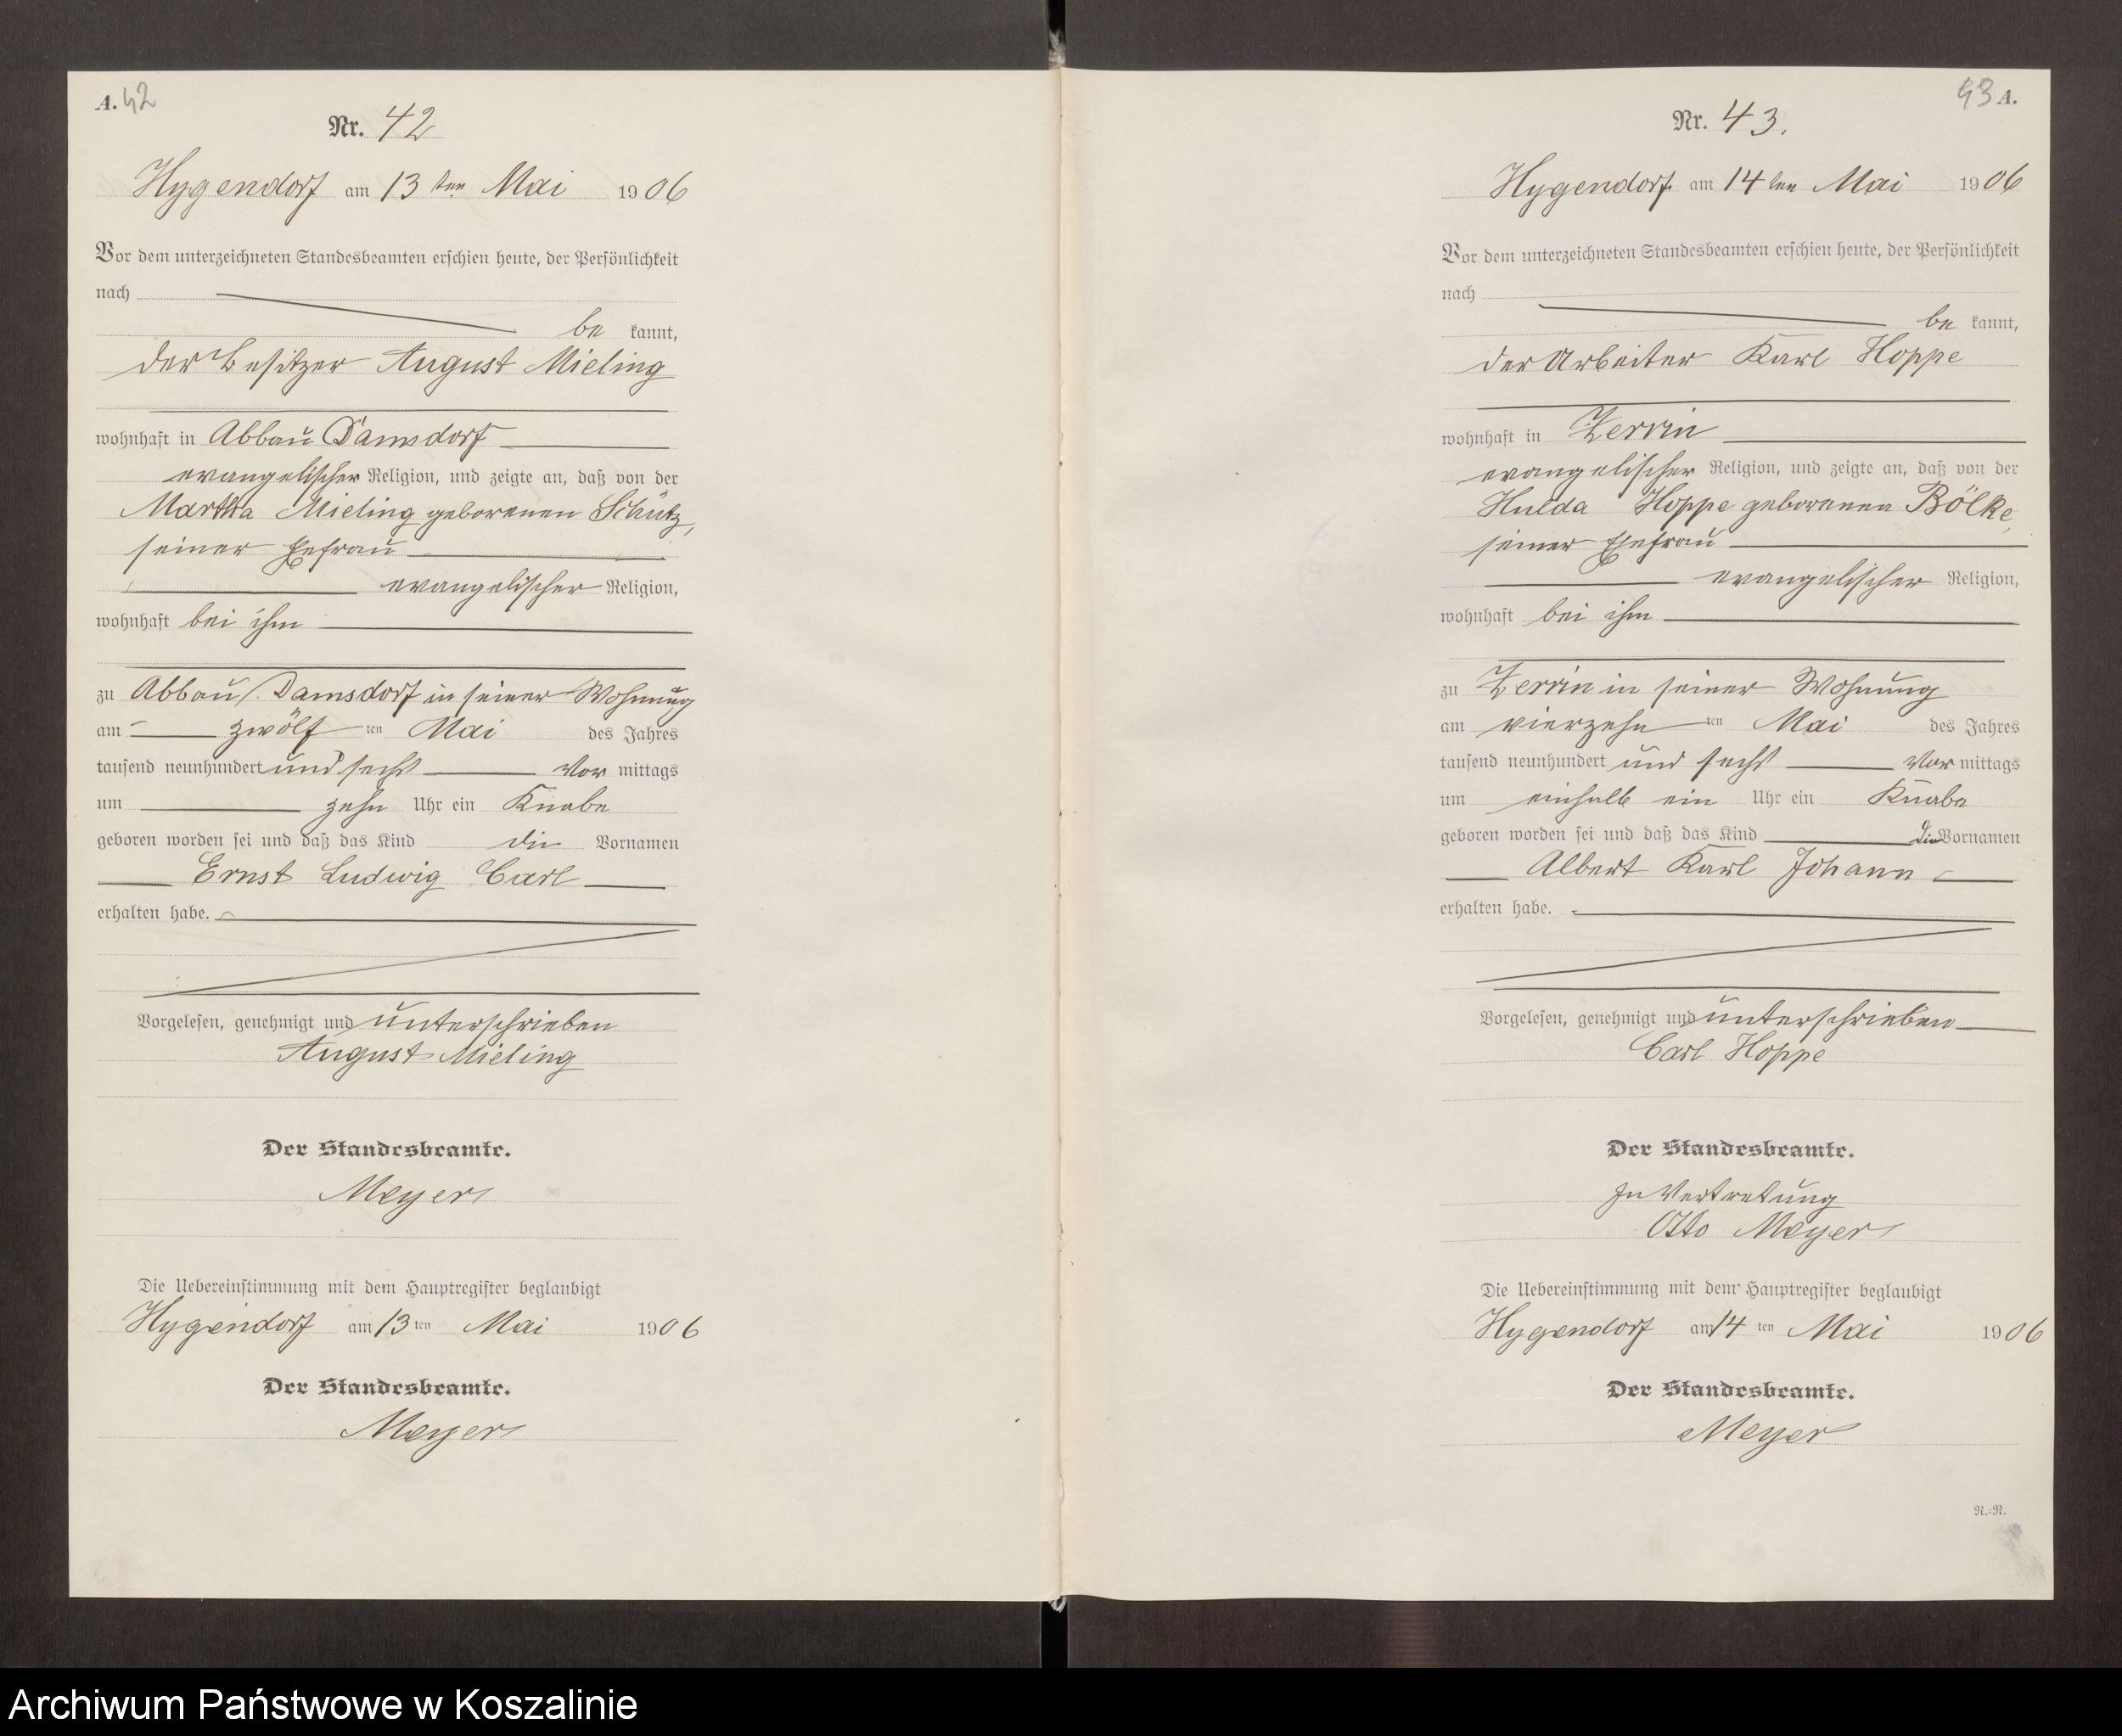 A. 42
Nr. 42
Hygendorf am 13 ten Mai 1906
Vor dem unterzeichneten Standesbeamten erschien heute, der Persönlichkeit
nach
be kannt,
der Besitzer August Mieling
wohnhaft in Abbau Damsdorf
evangelischer Religion, und zeigte an, daß von der
Martha Mieling geborenen Schütz,
seiner Ehefrau
evangelischer Religion,
wohnhaft bei ihm
zu Abbau Damsdorf in seiner Wohnung
am zwölf ten Mai des Jahres
tausend neunhundert und sechs Vor mittags
um zehn Uhr ein Knabe
geboren worden sei und daß das Kind die Vornamen
Ernst Ludwig Carl
erhalten habe.
Vorgelesen, genehmigt und unterschrieben
August Mieling
Der Standesbeamte.
Meyer
Die Uebereinstimmung mit dem Hauptregister beglaubigt
Hygendorf am 13 ten Mai 1906
Der Standesbeamte.
Meyer
43 A.
Nr. 43.
Hygendorf am 14 ten Mai 1906
Vor dem unterzeichneten Standesbeamten erschien heute, der Persönlichkeit
nach
be kannt,
der Arbeiter Karl Hoppe
wohnhaft in Zerrin
evangelischer Religion, und zeigte an, daß von der
Hulda Hoppe geborenen Bölke,
seiner Ehefrau
evangelischer Religion,
wohnhaft bei ihm
zu Zerrin in seiner Wohnung
am vierzehn ten Mai des Jahres
tausend neunhundert und sechs Vor mittags
um einhalb ein Uhr ein Knabe
geboren worden sei und daß das Kind die Vornamen
Albert Karl Johann
erhalten habe.
Vorgelesen, genehmigt und unterschrieben
Carl Hoppe
Der Standesbeamte.
In Vertretung
Otto Meyer
Die Uebereinstimmung mit dem Hauptregister beglaubigt
Hygendorf am 14 ten Mai 1906
Der Standesbeamte.
Meyer
N.=R.
Archiwum Państwowe w Koszalinie